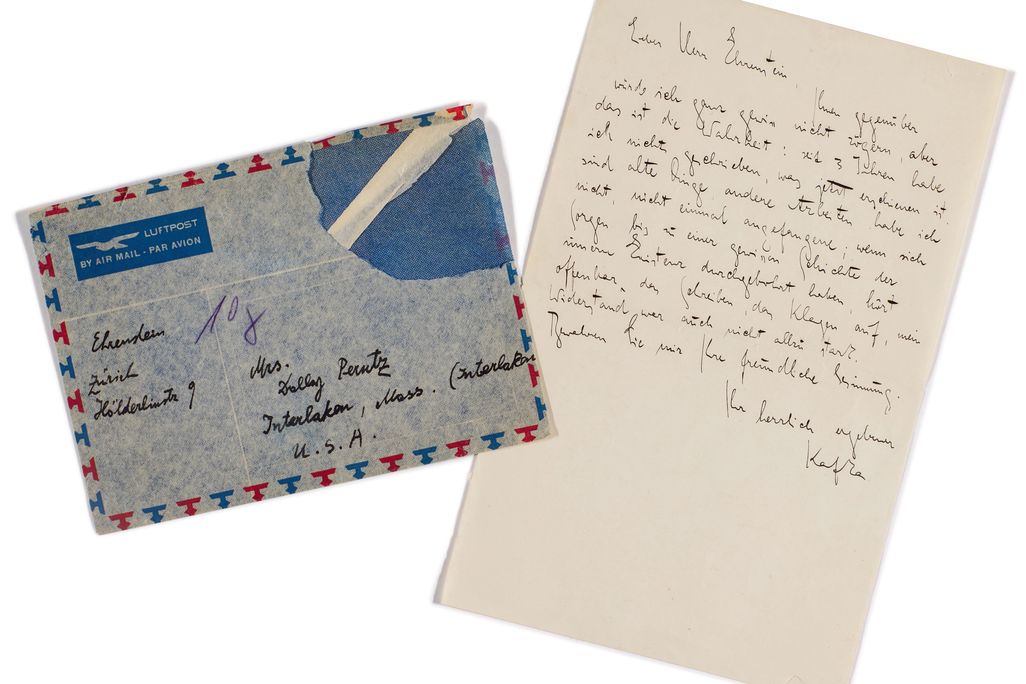 LUFTPOST
BY AIR MAIL - PAR AVION
10 8
Ehrenstein
Zürich
Hölderlinstr 9
Mrs.
Dolly Perutz
Interlaken, Mass. (Interlaken
U. S. A.
Lieber Herr Ehrenstein,
Ihnen gegenüber
würde ich ganz gewiss nicht zögern, aber
das ist die Wahrheit: seit 3 Jahren habe
ich nicht geschrieben, was jetzt erschienen ist
sind alte Dinge, andere Arbeiten habe ich
nicht, nicht einmal angefangene; wenn sich
Sorgen bis zu einer gewissen Schichte der
innern Existenz durchgebohrt haben, hört
offenbar das Schreiben und Klagen auf, mein
Widerstand war auch nicht allzu stark.
Bewahren Sie mir Ihre freundliche Gesinnung.
Ihr herzlich ergebener
Kafka